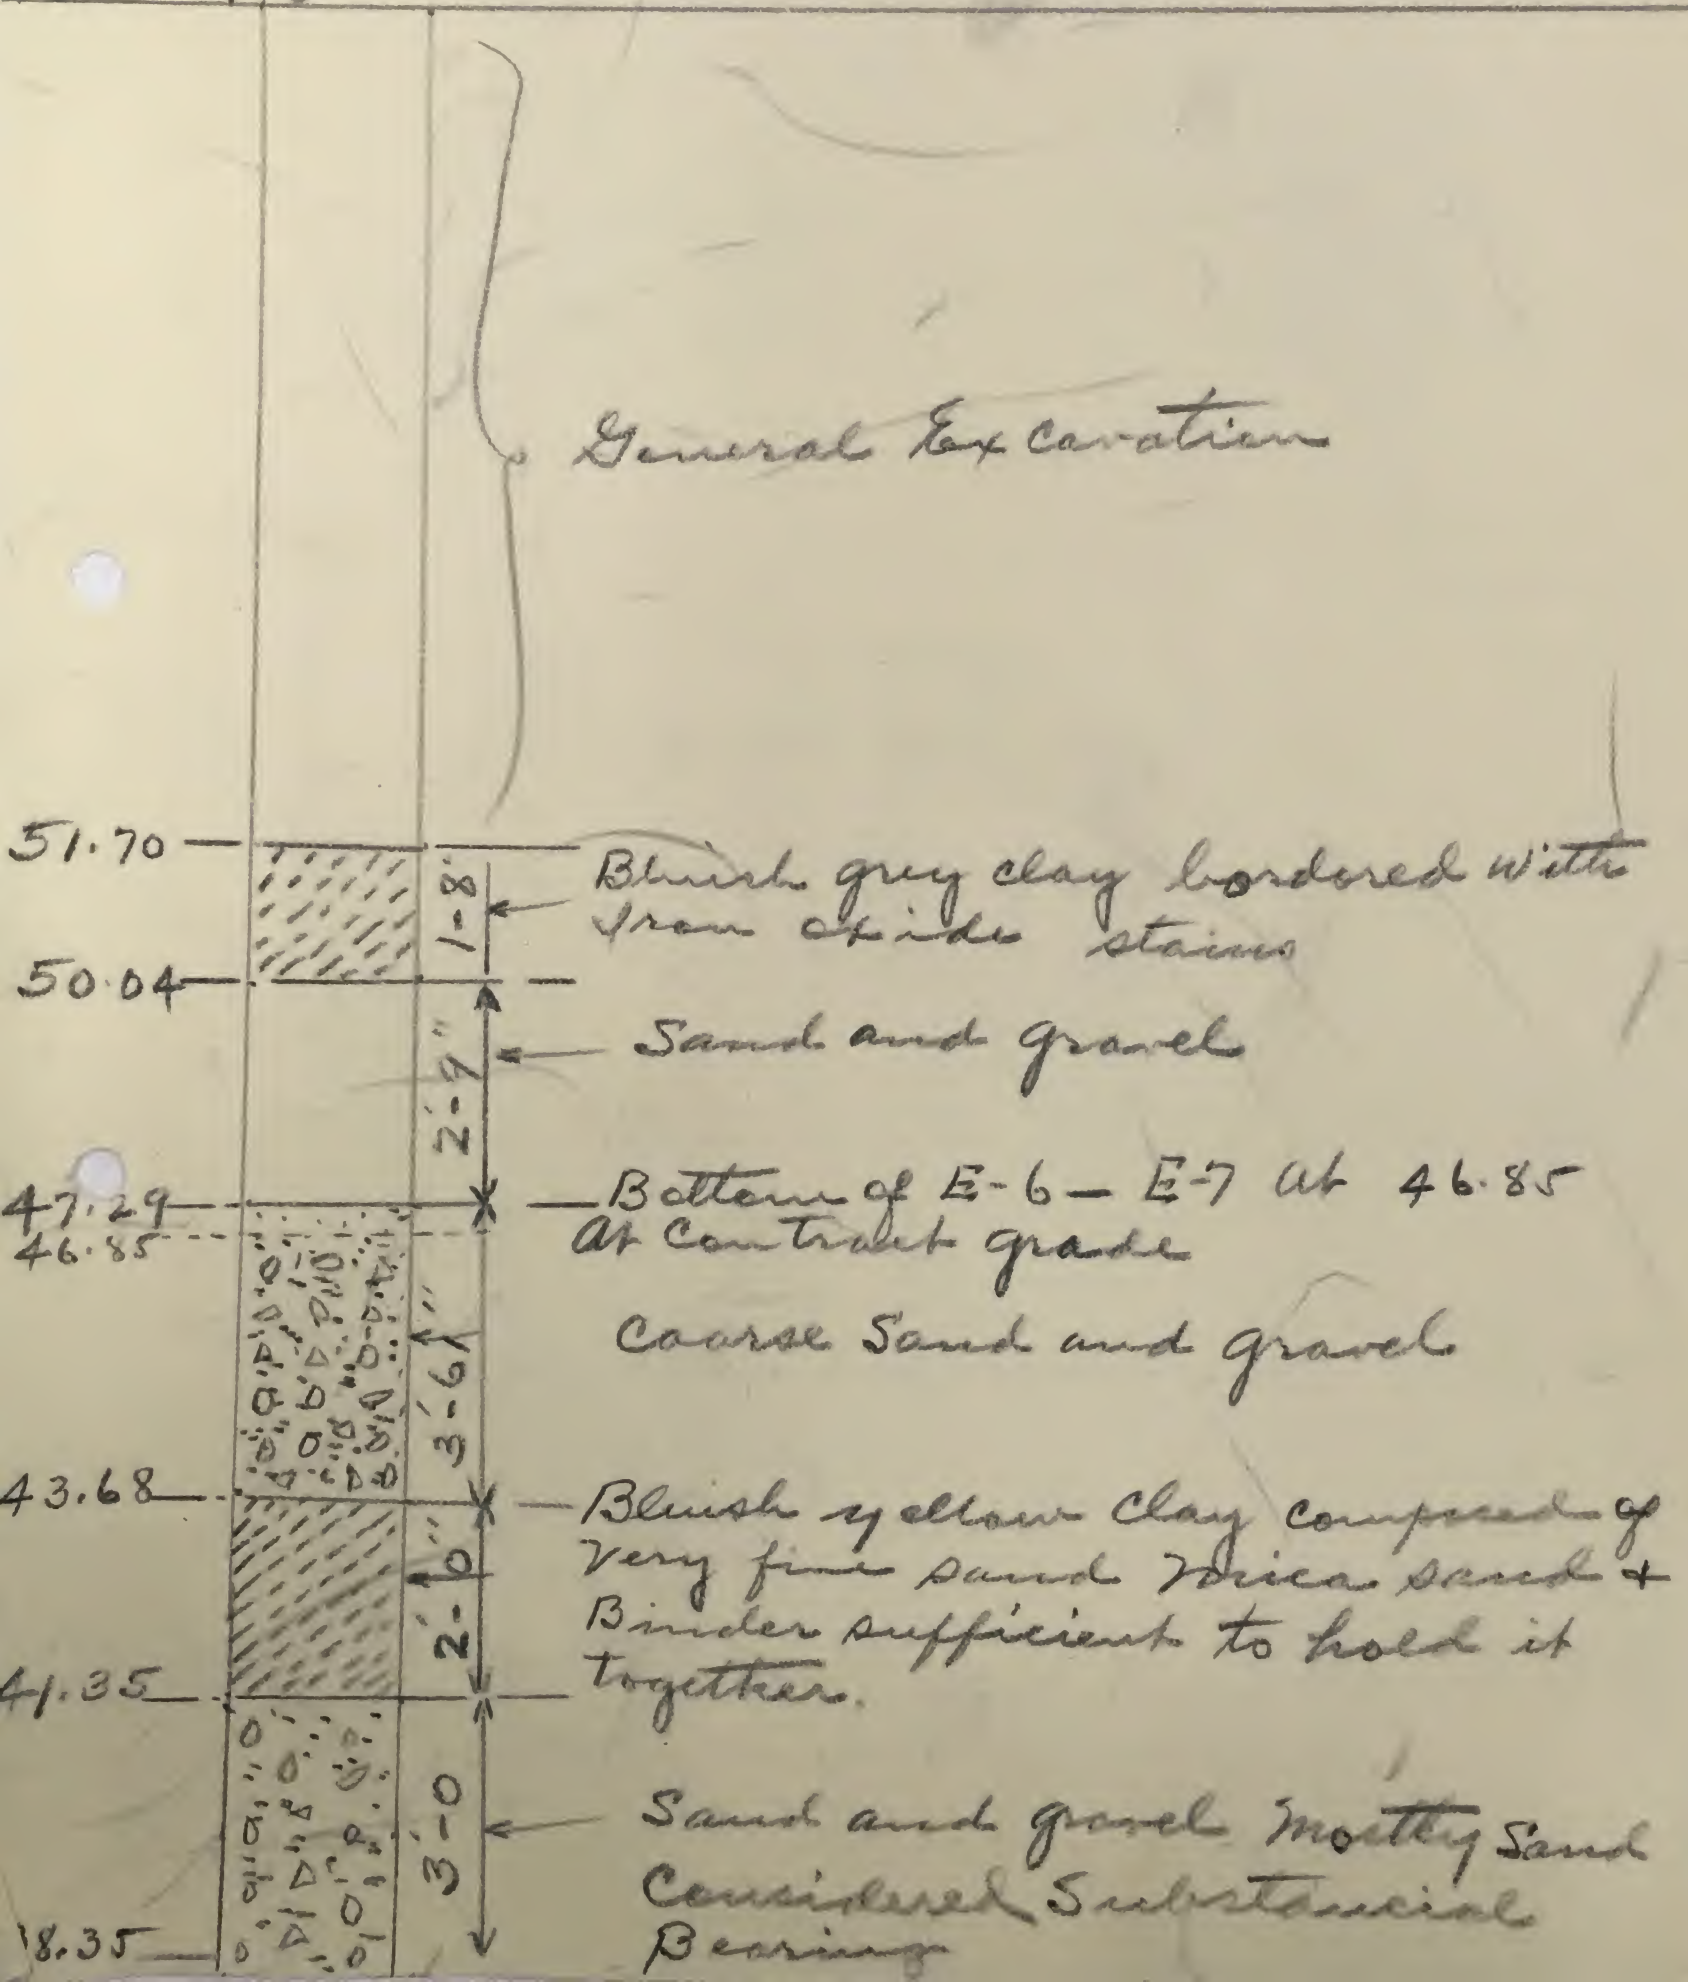 General Excavation
51.70
1-8"
Bluish grey clay bordered with
Iron oxide stains
50.04
2'-9"
Sand and gravel
47.29
Bottom of E-6 - E-7 at 46.85
46.85
At Contract grade
3'-6"
Coarse Sand and gravel
43.68
Bluish yellow Clay composed of
Very fine sand Mica sand +
2'-0"
Binder sufficient to hold it
41.35
together.
3'-0
Sand and gravel Mostly Sand
Considered Substancial
8.35
Bearing